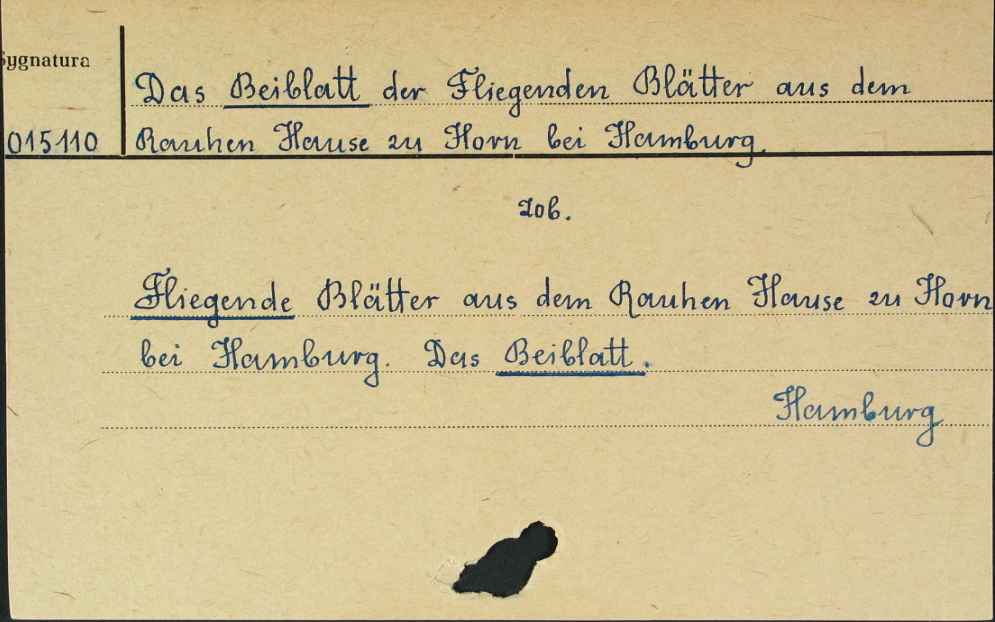 Sygnatura
Das Beiblatt der Fliegenden Blätter aus dem
015110 Rauhen Hause zu Horn bei Hamburg.
zob.
Fliegende Blätter aus dem Rauhen Hause zu Horn
bei Hamburg. Das Beiblatt.
Hamburg